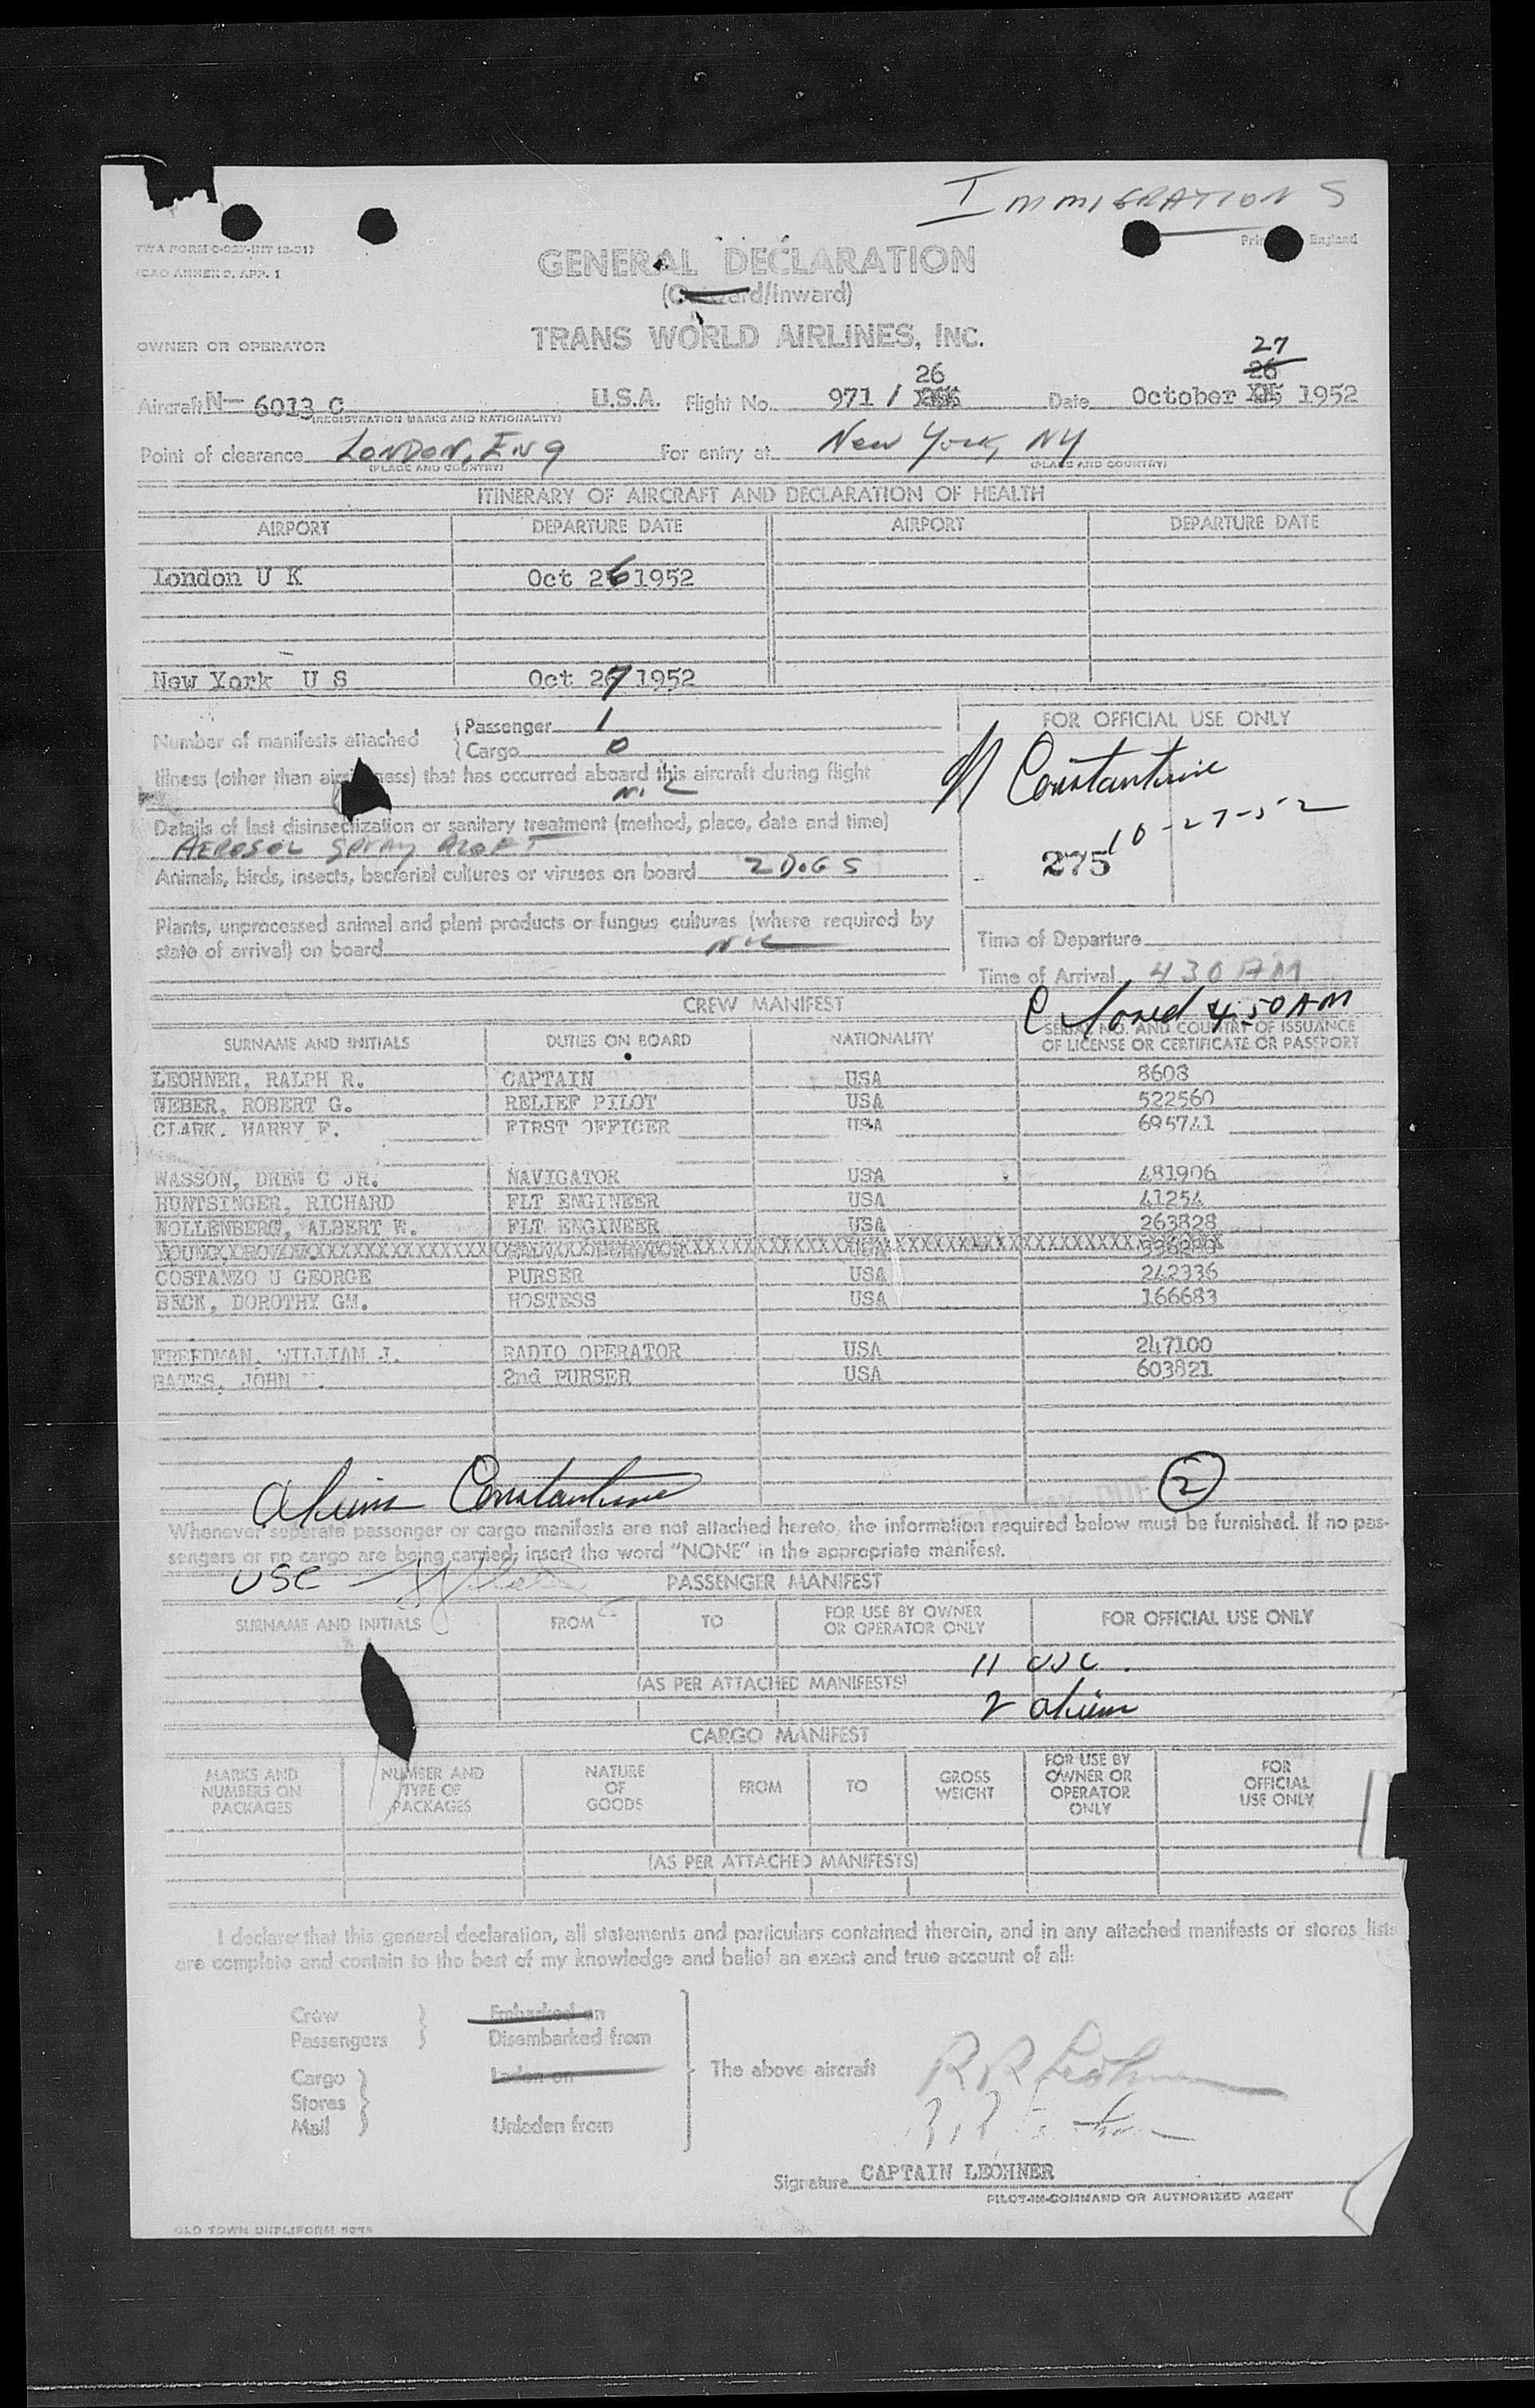 IMMIGRATIONS
TWA FORM
ICAO ANNEX 9, APP. 1
England
GENERAL DECLARATION
(Outward/Inward)
OWNER OR OPERATOR
TRANS WORLD AIRLINES, INC.
27
26 26
Aircraft N- 6013 C U.S.A. Flight No. 971 / Date October 1952
(REGISTRATION MARKS AND NATIONALITY)
Point of clearance LONDON, ENG For entry at New York, NY
(PLACE AND COUNTRY) (PLACE AND COUNTRY)
ITINERARY OF AIRCRAFT AND DECLARATION OF HEALTH
AIRPORT DEPARTURE DATE AIRPORT DEPARTURE DATE
London U K Oct 26 1952
New York U S Oct 27 1952
FOR OFFICIAL USE ONLY
Number of manifests attached { Passenger 1
{ Cargo 0
Illness (other than airsickness) that has occurred aboard this aircraft during flight
NIL
Constantine
10-27-52
275
Details of last disinsectization or sanitary treatment (method, place, date and time)
AEROSOL SPRAY ALOFT
Animals, birds, insects, bacterial cultures or viruses on board 2 DOGS
Plants, unprocessed animal and plant products or fungus cultures (where required by
state of arrival) on board NIL
Time of Departure
Time of Arrival 430 AM
CREW MANIFEST
4:50 AM
SURNAME AND INITIALS DUTIES ON BOARD NATIONALITY SERIAL NO. AND COUNTRY OF ISSUANCE
OF LICENSE OR CERTIFICATE OR PASSPORT
LEOHNER, RALPH R. CAPTAIN USA 8608
WEBER, ROBERT G. RELIEF PILOT USA 522560
CLARK, HARRY F. FIRST OFFICER USA 695741
WASSON, DREW C JR. NAVIGATOR USA 481906
HUNTSINGER, RICHARD FLT ENGINEER USA 41254
WOLLENBERG, ALBERT W. FLT ENGINEER USA 263828
COSTANZO U GEORGE PURSER USA 242336
BECK, DOROTHY GM. HOSTESS USA 166683
FREEDMAN, WILLIAM J. RADIO OPERATOR USA 247100
BATES, JOHN 2nd PURSER USA 603821
Constantine
2
Whenever separate passenger or cargo manifests are not attached hereto, the information required below must be furnished. If no pas-
sengers or no cargo are being carried, insert the word "NONE" in the appropriate manifest.
USC
PASSENGER MANIFEST
SURNAME AND INITIALS FROM TO FOR USE BY OWNER
OR OPERATOR ONLY FOR OFFICIAL USE ONLY
11 USC
(AS PER ATTACHED MANIFESTS)
2
CARGO MANIFEST
MARKS AND
NUMBERS ON
PACKAGES
NUMBER AND
TYPE OF
PACKAGES
NATURE
OF
GOODS
FROM
TO
GROSS
WEIGHT
FOR USE BY
OWNER OR
OPERATOR
ONLY
FOR
OFFICIAL
USE ONLY
(AS PER ATTACHED MANIFESTS)
I declare that this general declaration, all statements and particulars contained therein, and in any attached manifests or stores lists
are complete and contain to the best of my knowledge and belief an exact and true account of all:
Crew } Embarked on
Passengers } Disembarked from
Cargo } Laden on The above aircraft R R Leohner
Stores }
Mail } Unladen from
Signature CAPTAIN LEOHNER
PILOT-IN-COMMAND OR AUTHORIZED AGENT
OLD TOWN DUPLIFORM